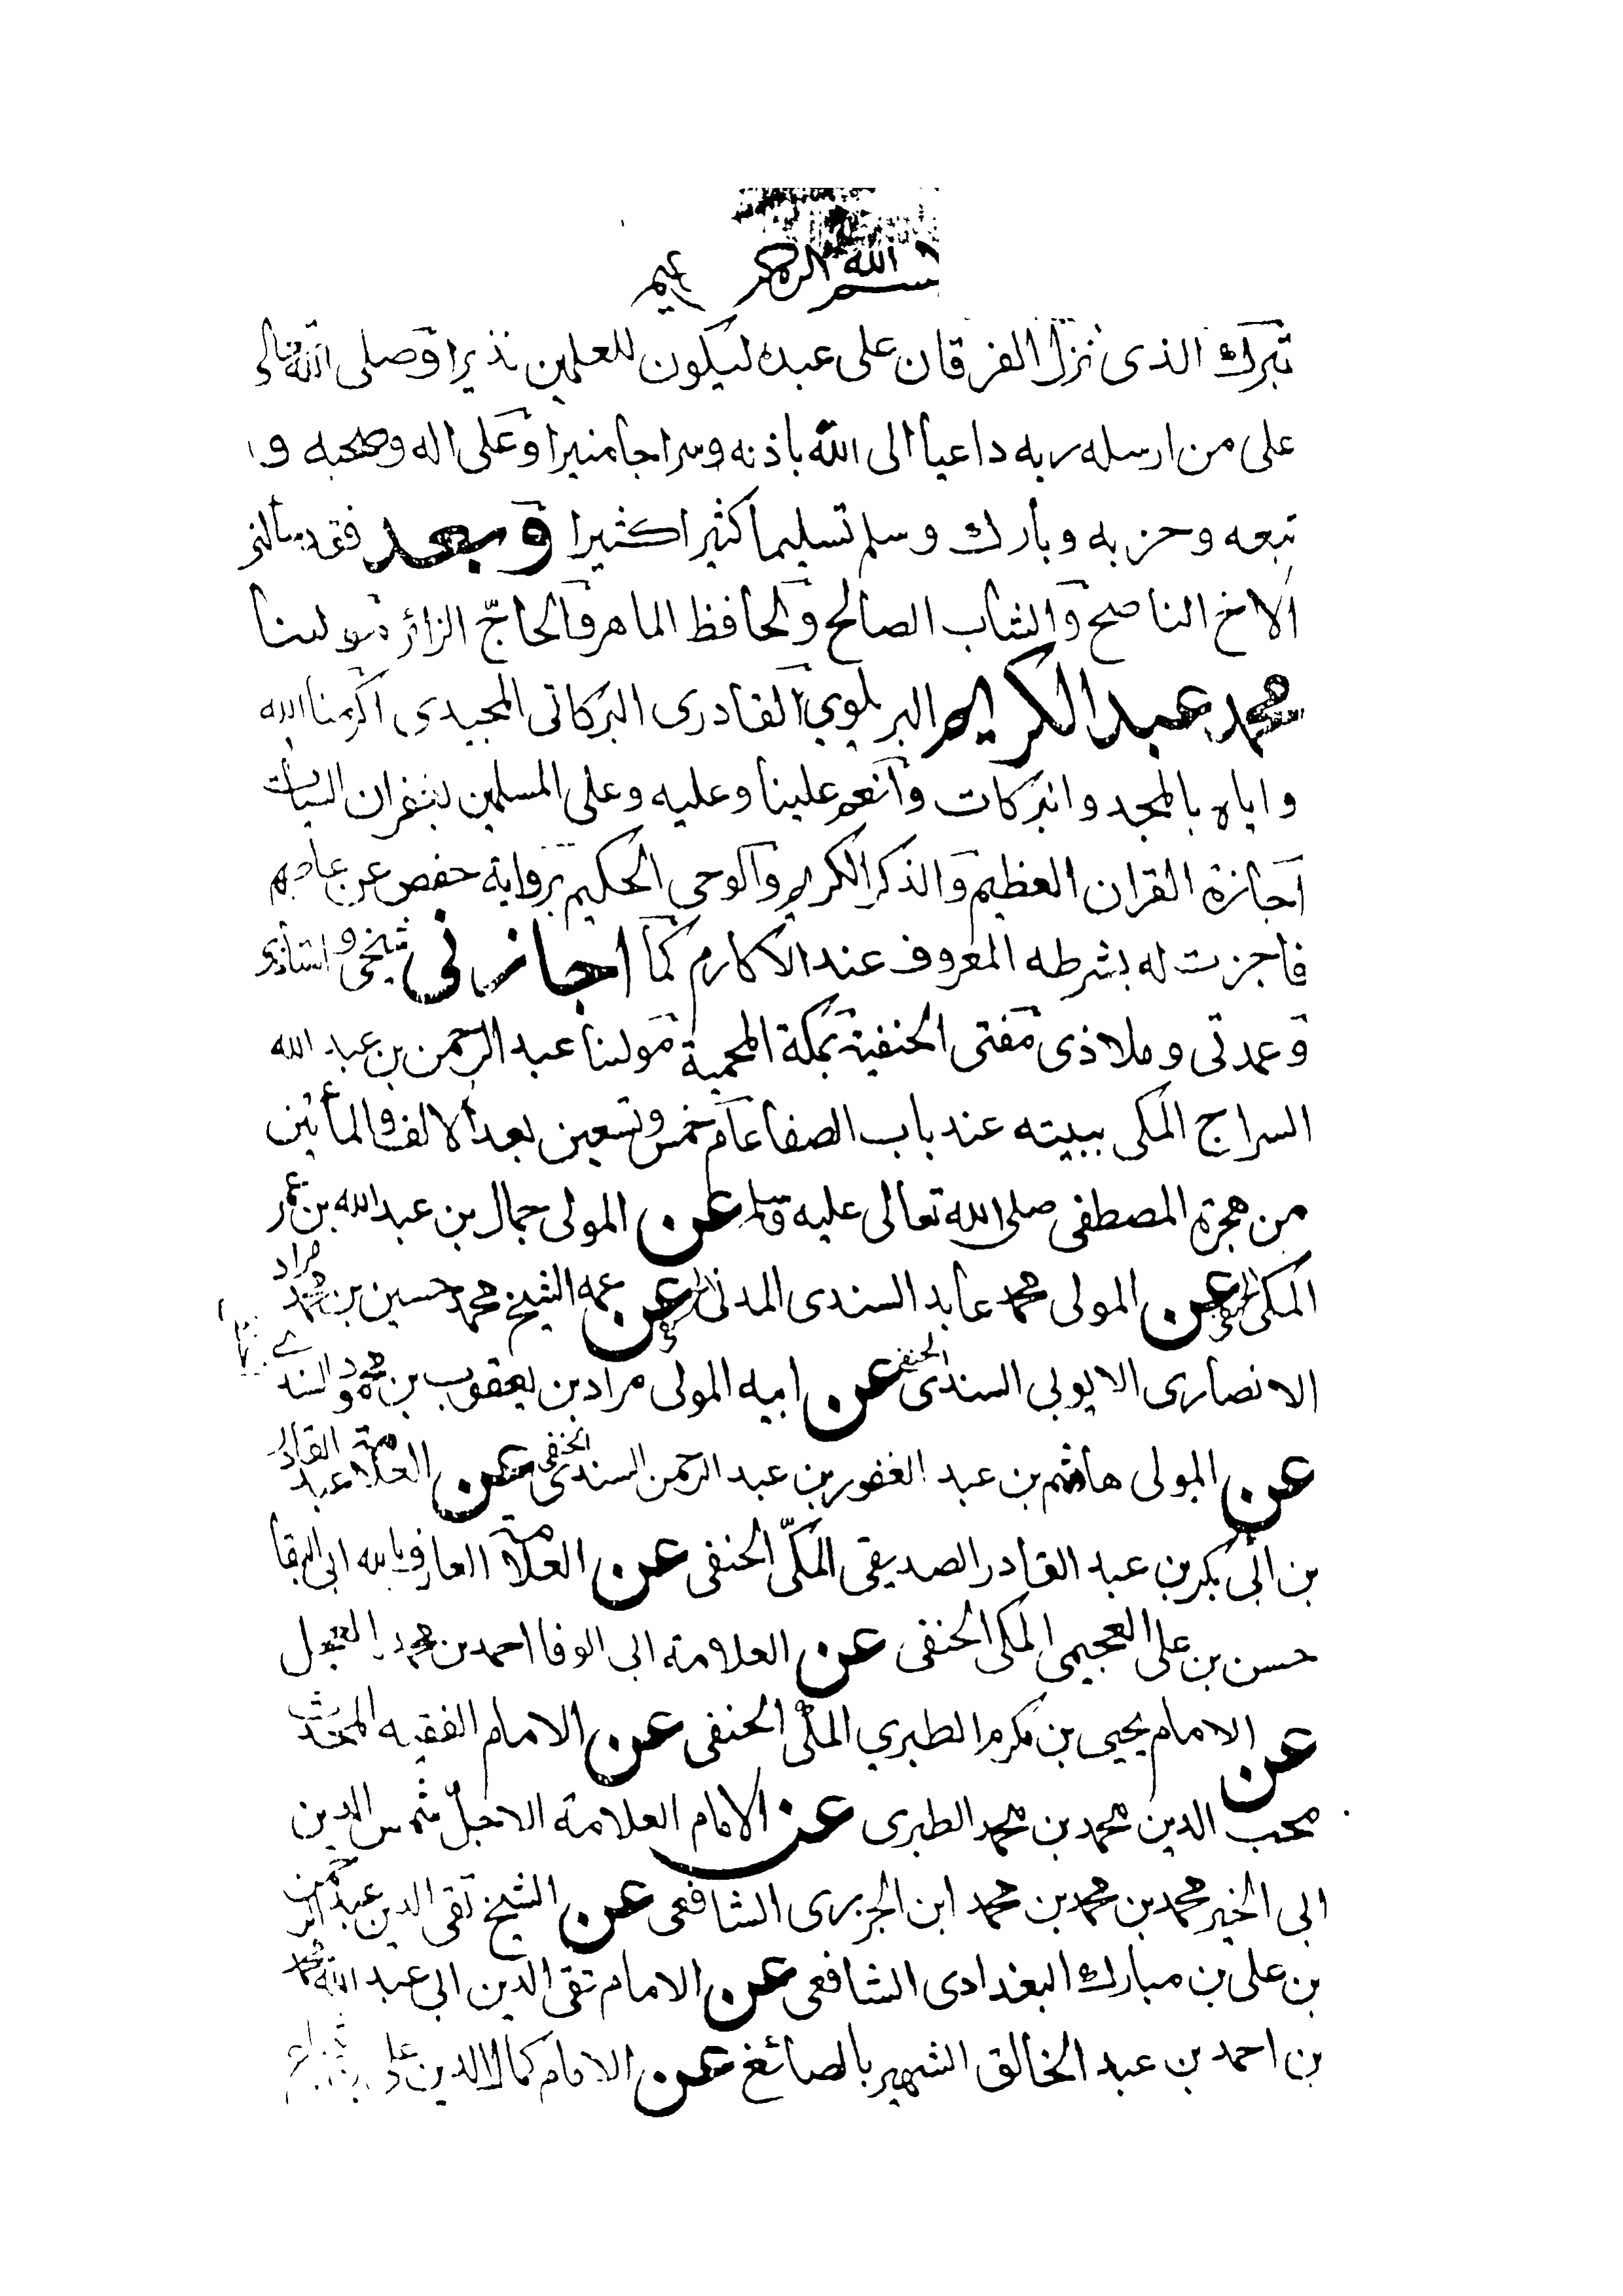 بسم الله الرحمن
تبرك الذى نزل الفرقان على عبده ليكون للعلمين نذيرا وصلى الله تعالى
على من ارسله ربه داعيا الى الله باذنه وسراجا منيرا وعلى اله وصحبه و
تبعه وحزبه وبارك وسلم تسليما كثيرا كثيرا وبعد فقد سألنى
الاخ الناصح والشاب الصالح والحافظ الماهر والحاجّ الزائر مولينا
محمد عبد الكريم البريلوي القادرى البركاتى المجيدى اكرمنا الله
واياه بالمجد والبركات وانعم علينا وعليه وعلى المسلمين بغفران السيات
اجازة القران العظيم والذكر الكريم والوحى الحكيم برواية حفص عن عاصم
فاجزت له بشرطه المعروف عند الاكارم كما اجازنى شيخى واستاذى
وعمدتى وملاذى مفتى الحنفية بمكة المحمية مولنا عبد الرحمن بن عبد الله
السراج المكى ببيته عند باب الصفا عام خمس وتسعين بعد الالف والمأتين
من هجرة المصطفى صلى الله تعالى عليه وسلم عن المولى جمال بن عبد الله بن عمر
المكى الحنفى عن المولى محمد عابد السندى المدنى عن عمه الشيخ محمد حسين بن محمد مراد
الانصارى الايوبى السندى الحنفى عن ابيه المولى مراد بن يعقوب بن محمود السندى
عن المولى هاشم بن عبد الغفور بن عبد الرحمن السندى الحنفى عن العلامة عبد القادر
بن ابى بكر بن عبد القادر الصديقى المكّى الحنفى عن العلامة العارف بالله ابى البقا
حسن بن على العجيمى المكى الحنفى عن العلامة ابى الوفا احمد بن محمد العجيل
عن الامام يحيى بن مكرم الطبري المكى الحنفى عن الامام الفقيه المحدث
محب الدين محمد بن محمد الطبرى عن الامام العلامة الاجلّ شمس الدين
ابى الخير محمد بن محمد بن محمد ابن الجزرى الشافعى عن الشيخ تقى الدين عبد الرحمن
بن على بن مبارك البغدادى الشافعى عن الامام تقى الدين ابى عبد الله محمد
بن احمد بن عبد الخالق الشهير بالصائغ عن الامام كمال الدين على